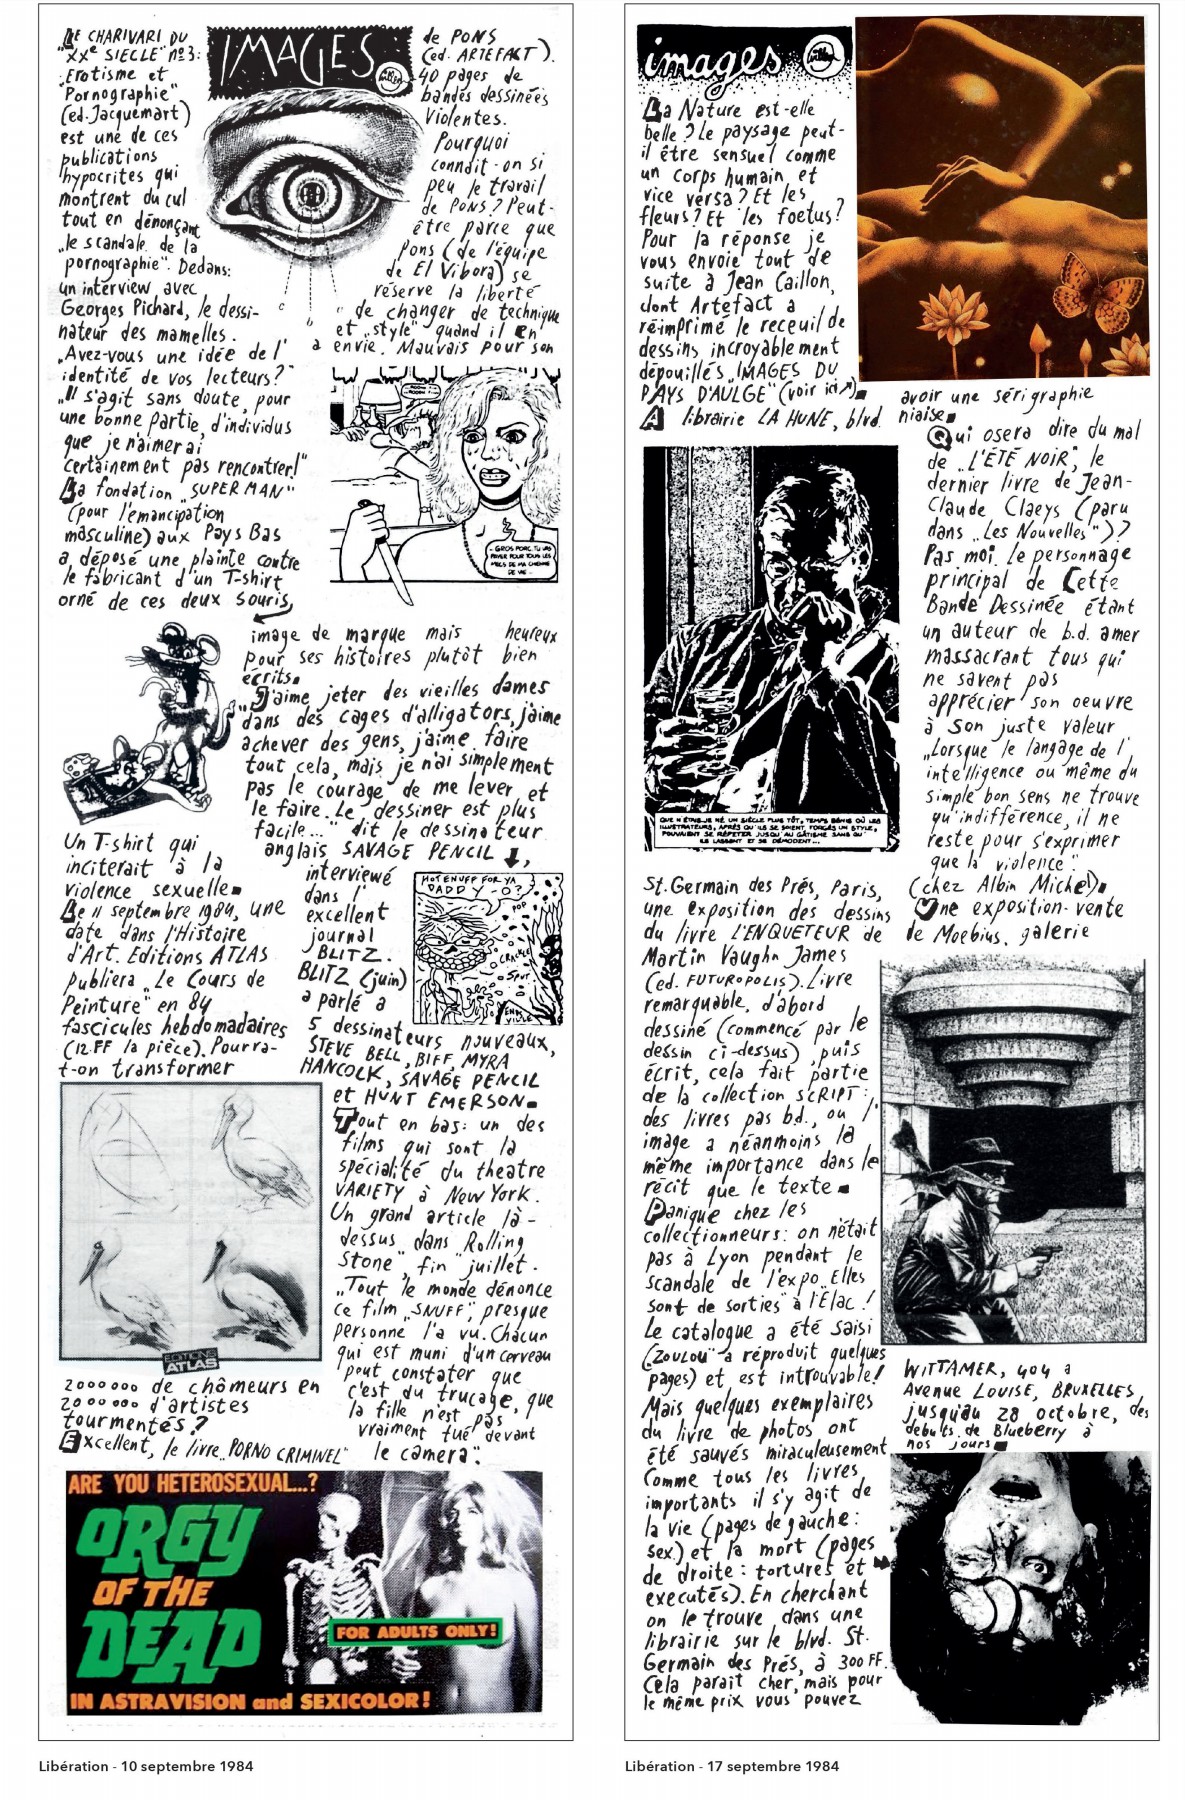 IMAGES
Willem
LE CHARIVARI DU
"XXe SIECLE" nº3:
"Erotisme et
Pornographie"
(ed. Jacquemart)
est une de ces
publications
hypocrites qui
montrent du cul
tout en dénonçant
"le scandale de la
pornographie". Dedans:
un interview avec
Georges Pichard, le dessi-
nateur des mamelles.
"Avez-vous une idée de l'
identité de vos lecteurs?"
"Il s'agit sans doute, pour
une bonne partie, d'individus
que je n'aimerai
certainement pas rencontrer!"
La fondation "SUPERMAN"
(pour l'émancipation
masculine) aux Pays Bas
a déposé une plainte contre
le fabricant d'un T-shirt
orné de ces deux souris,
Un T-shirt qui
inciterait à la
violence sexuelle
Le 11 septembre 1984, une
date dans l'Histoire
d'Art. Editions ATLAS
publiera "Le Cours de
Peinture" en 84
fascicules hebdomadaires
(12 FF la pièce). Pourra-
t-on transformer
EDITIONS
ATLAS
2000000 de chômeurs en
2000000 d'artistes
tourmentés?
Excellent, le livre "PORNO CRIMINEL"
de PONS
(ed. ARTEFACT).
40 pages de
bandes dessinées
violentes.
Pourquoi
connait-on si
peu le travail
de PONS? Peut-
être parce que
Pons (de l'équipe
de El Vibora) se
réserve la liberté
de changer de technique
et "style" quand il en
envie. Mauvais pour son
c
b
a
- GROS PORC, TU VAS
PAYER POUR TOUS LES
MECS DE MA CHIENNE
DE VIE...
image de marque mais heureux
pour ses histoires plutôt bien
écrits.
"J'aime jeter des vieilles dames
dans des cages d'alligators, j'aime
achever des gens, j'aime faire
tout cela, mais je n'ai simplement
pas le courage de me lever et
le faire. Le dessiner est plus
facile..." dit le dessinateur
anglais SAVAGE PENCIL,
interviewé
dans l'
excellent
journal
BLITZ.
BLITZ (juin)
a parlé à
5 dessinateurs nouveaux,
STEVE BELL, BIFF, MYRA
HANCOLK, SAVAGE PENCIL
et HUNT EMERSON
HOT ENUFF FOR YA
DADDY-O?
POP
CRACKLE
SPUT
ENDS
VILLE
Tout en bas: un des
films qui sont la
spécialité du theatre
VARIETY à New York.
Un grand article là-
dessus dans "Rolling
Stone", fin juillet.
"Tout le monde dénonce
ce film "SNUFF", presque
personne l'a vu. Chacun
qui est muni d'un cerveau
peut constater que
c'est du trucage, que
la fille n'est pas
vraiment tué devant
le camera".
ARE YOU HETEROSEXUAL...?
ORGY
OF THE
DEAD
FOR ADULTS ONLY!
IN ASTRAVISION and SEXICOLOR!
Libération - 10 septembre 1984
images
Willem
La Nature est-elle
belle? Le paysage peut-
il être sensuel comme
un corps humain et
vice versa? Et les
fleurs? Et les foetus?
Pour la réponse je
vous envoie tout de
suite à Jean Caillon,
dont Artefact a
réimprimé le receuil de
dessins incroyablement
dépouillés "IMAGES DU
PAYS D'AULGE" (voir ici)
A librairie LA HUNE, blvd.
QUE N'ÉTAIS-JE NÉ UN SIÈCLE PLUS TÔT, TEMPS BÉNIS OÙ LES
ILLUSTRATEURS, APRÈS QU'ILS SE SOIENT FORGÉS UN STYLE,
POUVAIENT SE RÉPÉTER JUSQU'AU GÂTISME SANS QU'
ILS LASSENT ET SE DÉMODENT...
St. Germain des Prés, Paris,
une exposition des dessins
du livre L'ENQUETEUR de
Martin Vaughn James
(ed. FUTUROPOLIS). Livre
remarquable, d'abord
dessiné (commencé par le
dessin ci-dessus), puis
écrit, cela fait partie
de la collection SCRIPT:
des livres pas b.d., ou l'
image a néanmoins la
même importance dans le
récit que le texte
Panique chez les
collectionneurs: on n'était
pas à Lyon pendant le
scandale de l'expo "Elles
sont de sorties" à l'Elac!
Le catalogue a été saisi
("ZOULOU" a réproduit quelques
pages) et est introuvable!
Mais quelques exemplaires
du livre de photos ont
été sauvés miraculeusement
Comme tous les livres
importants il s'y agit de
la vie (pages de gauche:
sex) et la mort (pages
de droite: tortures et
executés). En cherchant
on le trouve dans une
librairie sur le blvd. St.
Germain des Prés, à 300 FF.
Cela parait cher, mais pour
le même prix vous pouvez
avoir une sérigraphie
niaise
Qui osera dire du mal
de "L'ÉTÉ NOIR", le
dernier livre de Jean-
Claude Claeys (paru
dans "Les Nouvelles")?
Pas moi. Le personnage
principal de Cette
Bande Dessinée étant
un auteur de b.d. amer
massacrant tous qui
ne savent pas
apprécier son oeuvre
à son juste valeur
"Lorsque le langage de l'
intelligence ou même du
simple bon sens ne trouve
qu'indifférence, il ne
reste pour s'exprimer
que la violence".
(chez Albin Michel)
Une exposition-vente
de Moebius, galerie
WITTAMER, 404 a
Avenue LOUISE, BRUXELLES,
jusqu'au 28 octobre, des
debuts de Blueberry à
nos jours
Libération - 17 septembre 1984